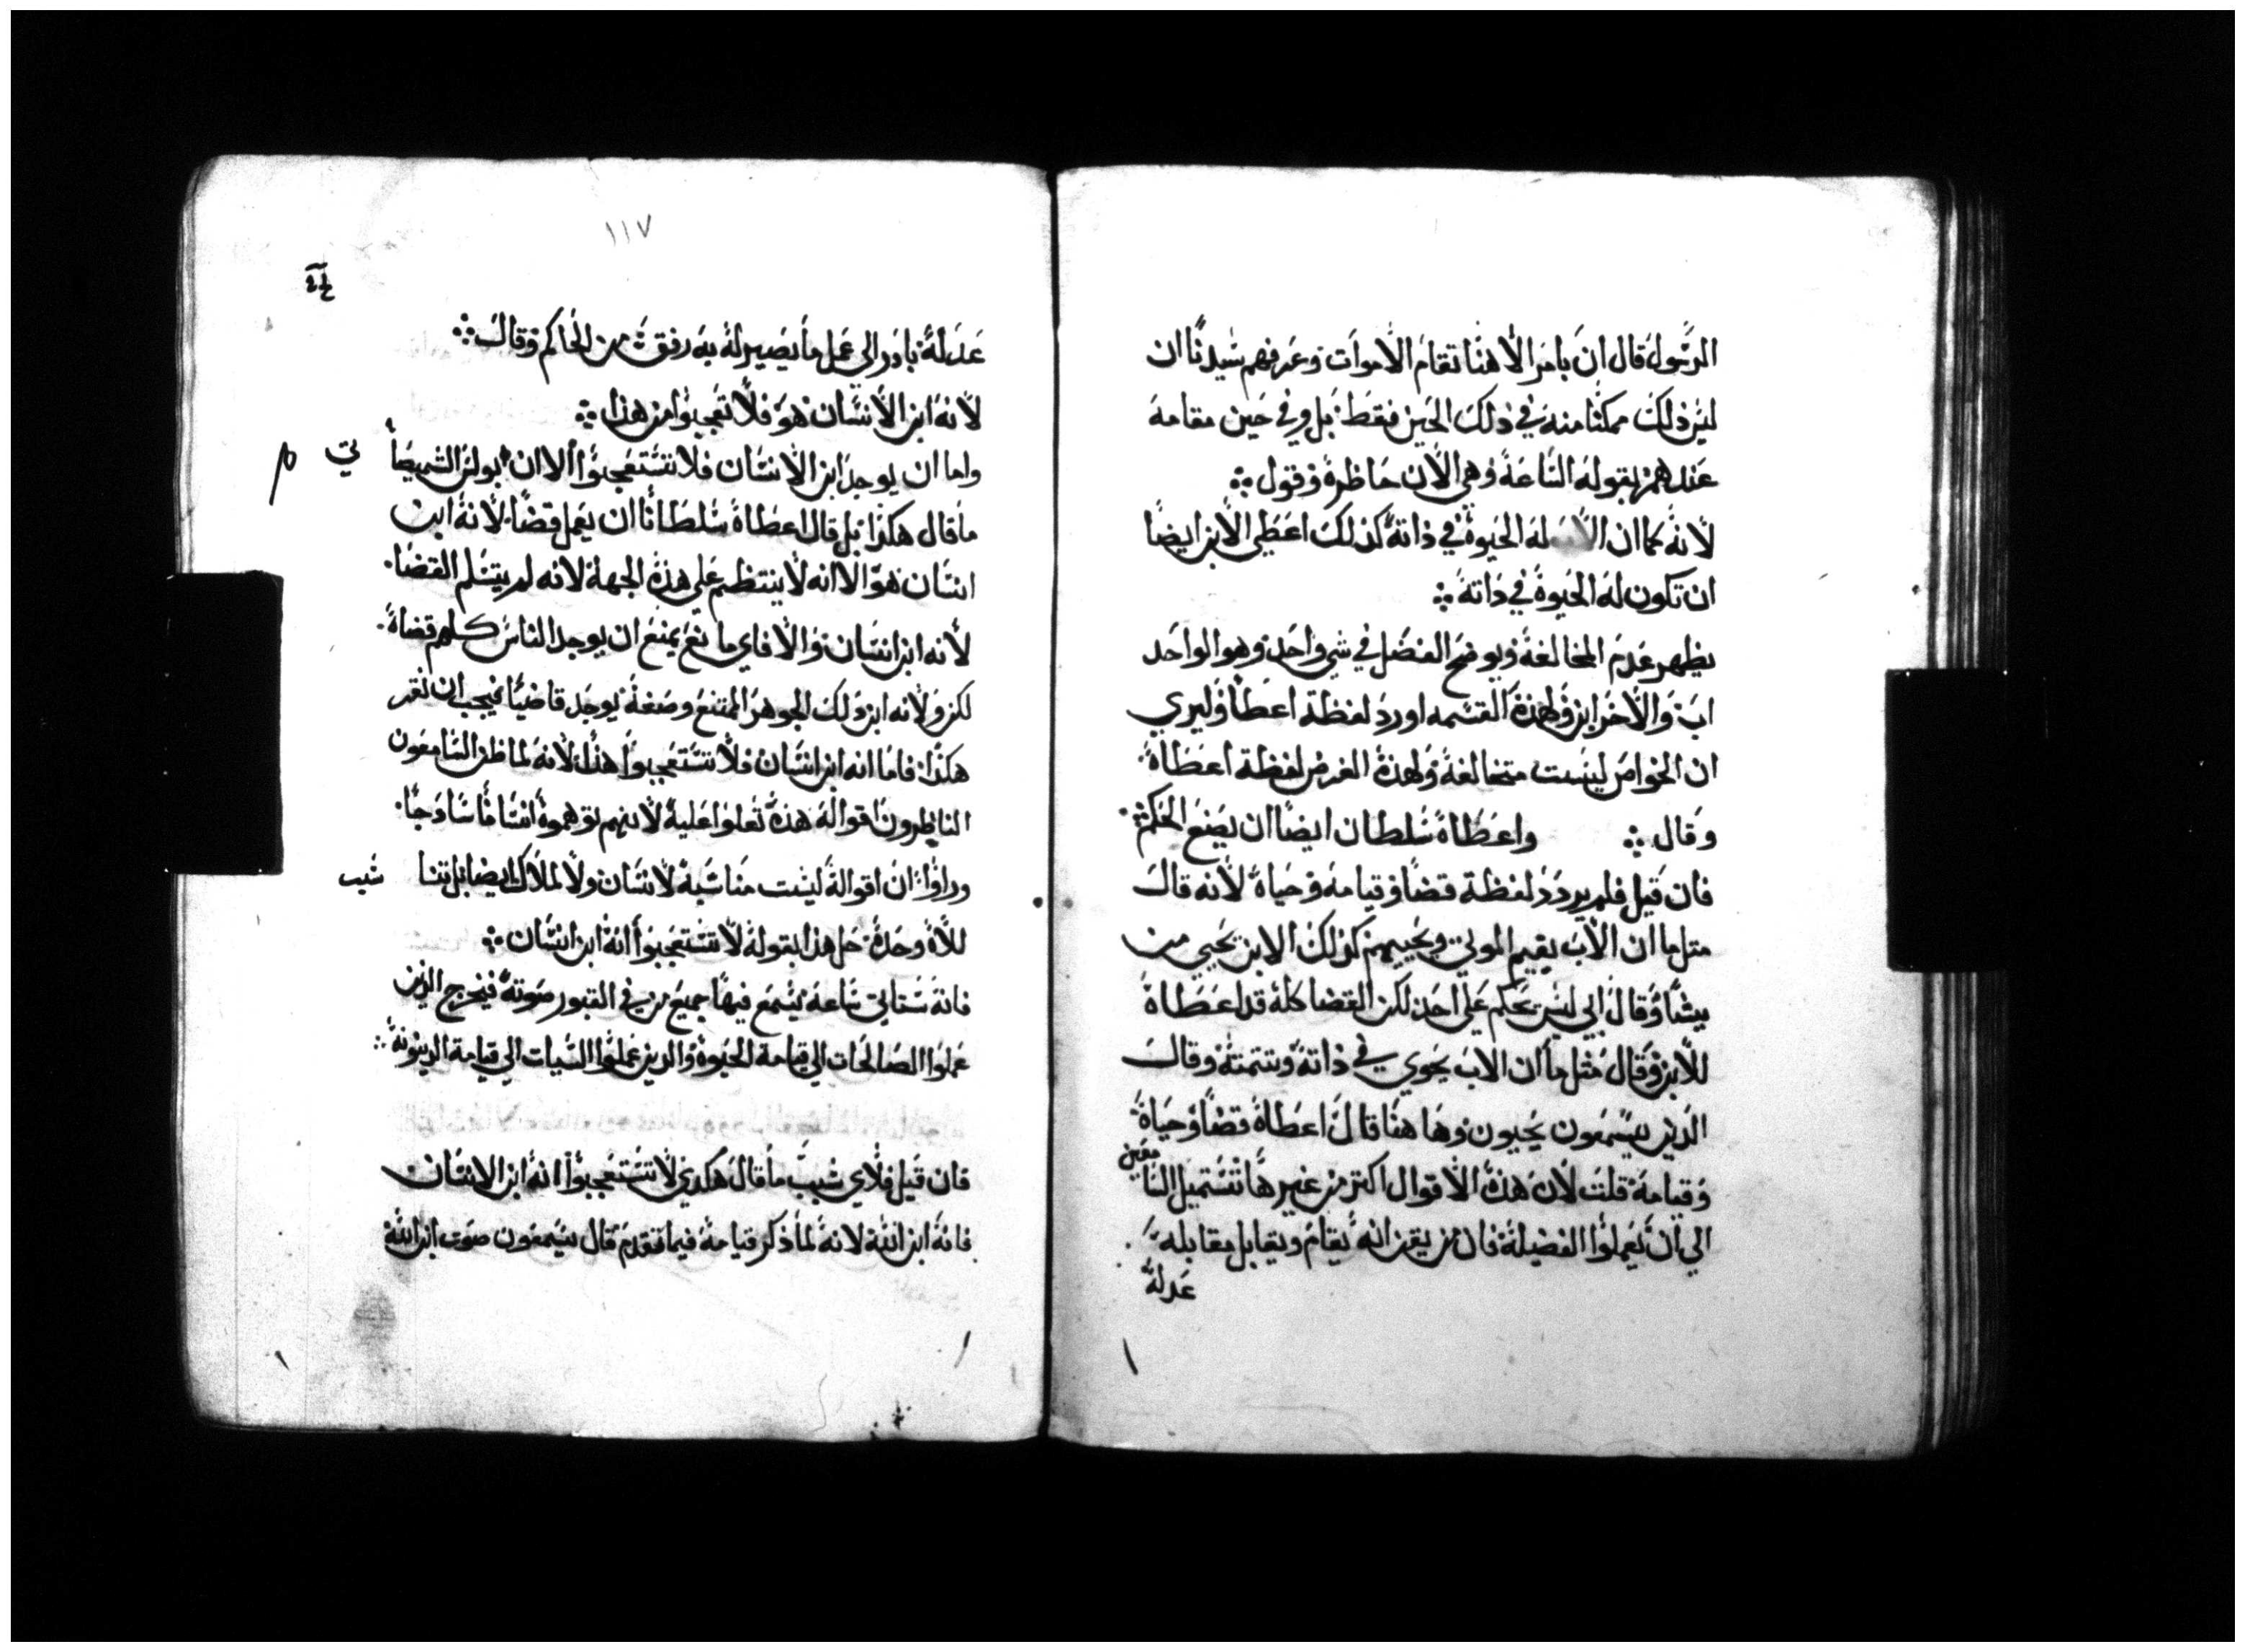 الرسول قال ان بامر الاهنا تقام الاموات وعرفهم سيدنا ان
ليس ذلك ممكنا منه في ذلك الحين فقط بل وفي حين مقامه
عندهم بقوله الساعة وهي الان حاظرة وقول ∴
لانه كما ان الاب له الحيوة في ذاته كذلك اعطي الابن ايضا
ان تكون له الحيوة في ذاته ∴
يظهر عدم المخالفة ويوضح الفضل في شي واحد وهو الواحد
اب والاخر ابن ولهذه القسمه اورد لفظة اعطا وليري
ان الخواص ليست متخالفة ولهذة الغرض لفظة اعطاه
وقال ∴ واعطاه سلطان ايضا ان يصنع الحكم ∴
فان قيل فلم يردد لفظة قضا وقيامه وحياة لانه قال
متل ما ان الاب يقيم الموتي ويحييهم كذلك الابن يحيي من
يشا وقال ابي ليس يحكم علي احد لكن القضا كله قد اعطاه
للابن وقال مثل ما ان الاب يحوي في ذاته وتتمته وقال
الذين يسمعون يحيون وها هنا قال اعطاه قضا وحياة
وقيامة قلت لان هذه الاقوال اكتر من غيرها تستميل السامعين
الي ان يعملوا الفضيلة فان من يقن انه يقام ويقابل مقابله
عدله
١١٧
عدله بادر الي عمل ما يصير له به رفقة من الحاكم وقال ∴
لانه ابن الانسان هو فلا تعجبوا من هذا ∴
واما ان يوجد ابن الانسان فلا تستعجبوا الا ان بولس الشميصا
تي م
ما قال هكذا بل قال اعطاه سلطانا ان يعمل قضا لانه ابن
انسان هو الا انه لا ينتظم علي هذه الجهة لانه لم يتسلم القضا
لانه ابن انسان والا فاي مانع يمنع ان يوجد الناس كلهم قضاة
لكن ولانه ابن ذلك الجوهر الممتنع وصفه يوجد قاضيا فيجب ان نقر
هكذا فاما انه ابن انسان فلا تستعجبوا هذا لانه لما ظن السامعون
الناظرون اقواله هذه تعلوا عليه لانهم توهموه انسانا سادجا
وراوا ان اقواله ليست مناسبه لانسان ولا لملاك ايضا بل تنا
سب
للاه وحده حل هذا بقوله لا تستعجبوا انه ابن انسان ∴
فانه ستاتي ساعة يسمع فيها جميع من في القبور صوته فيخرج الذين
عملوا الصالحات الي قيامة الحيوة والذين عملوا السيات الي قيامة الدينونة ∴
فان قيل فلاي سبب ما قال هكدي لا تستعجبوا انه ابن الانسان
فانه ابن الله لانه لما ذكر قيامه فيما تقدم قال سيسمعون صوت ابن الله